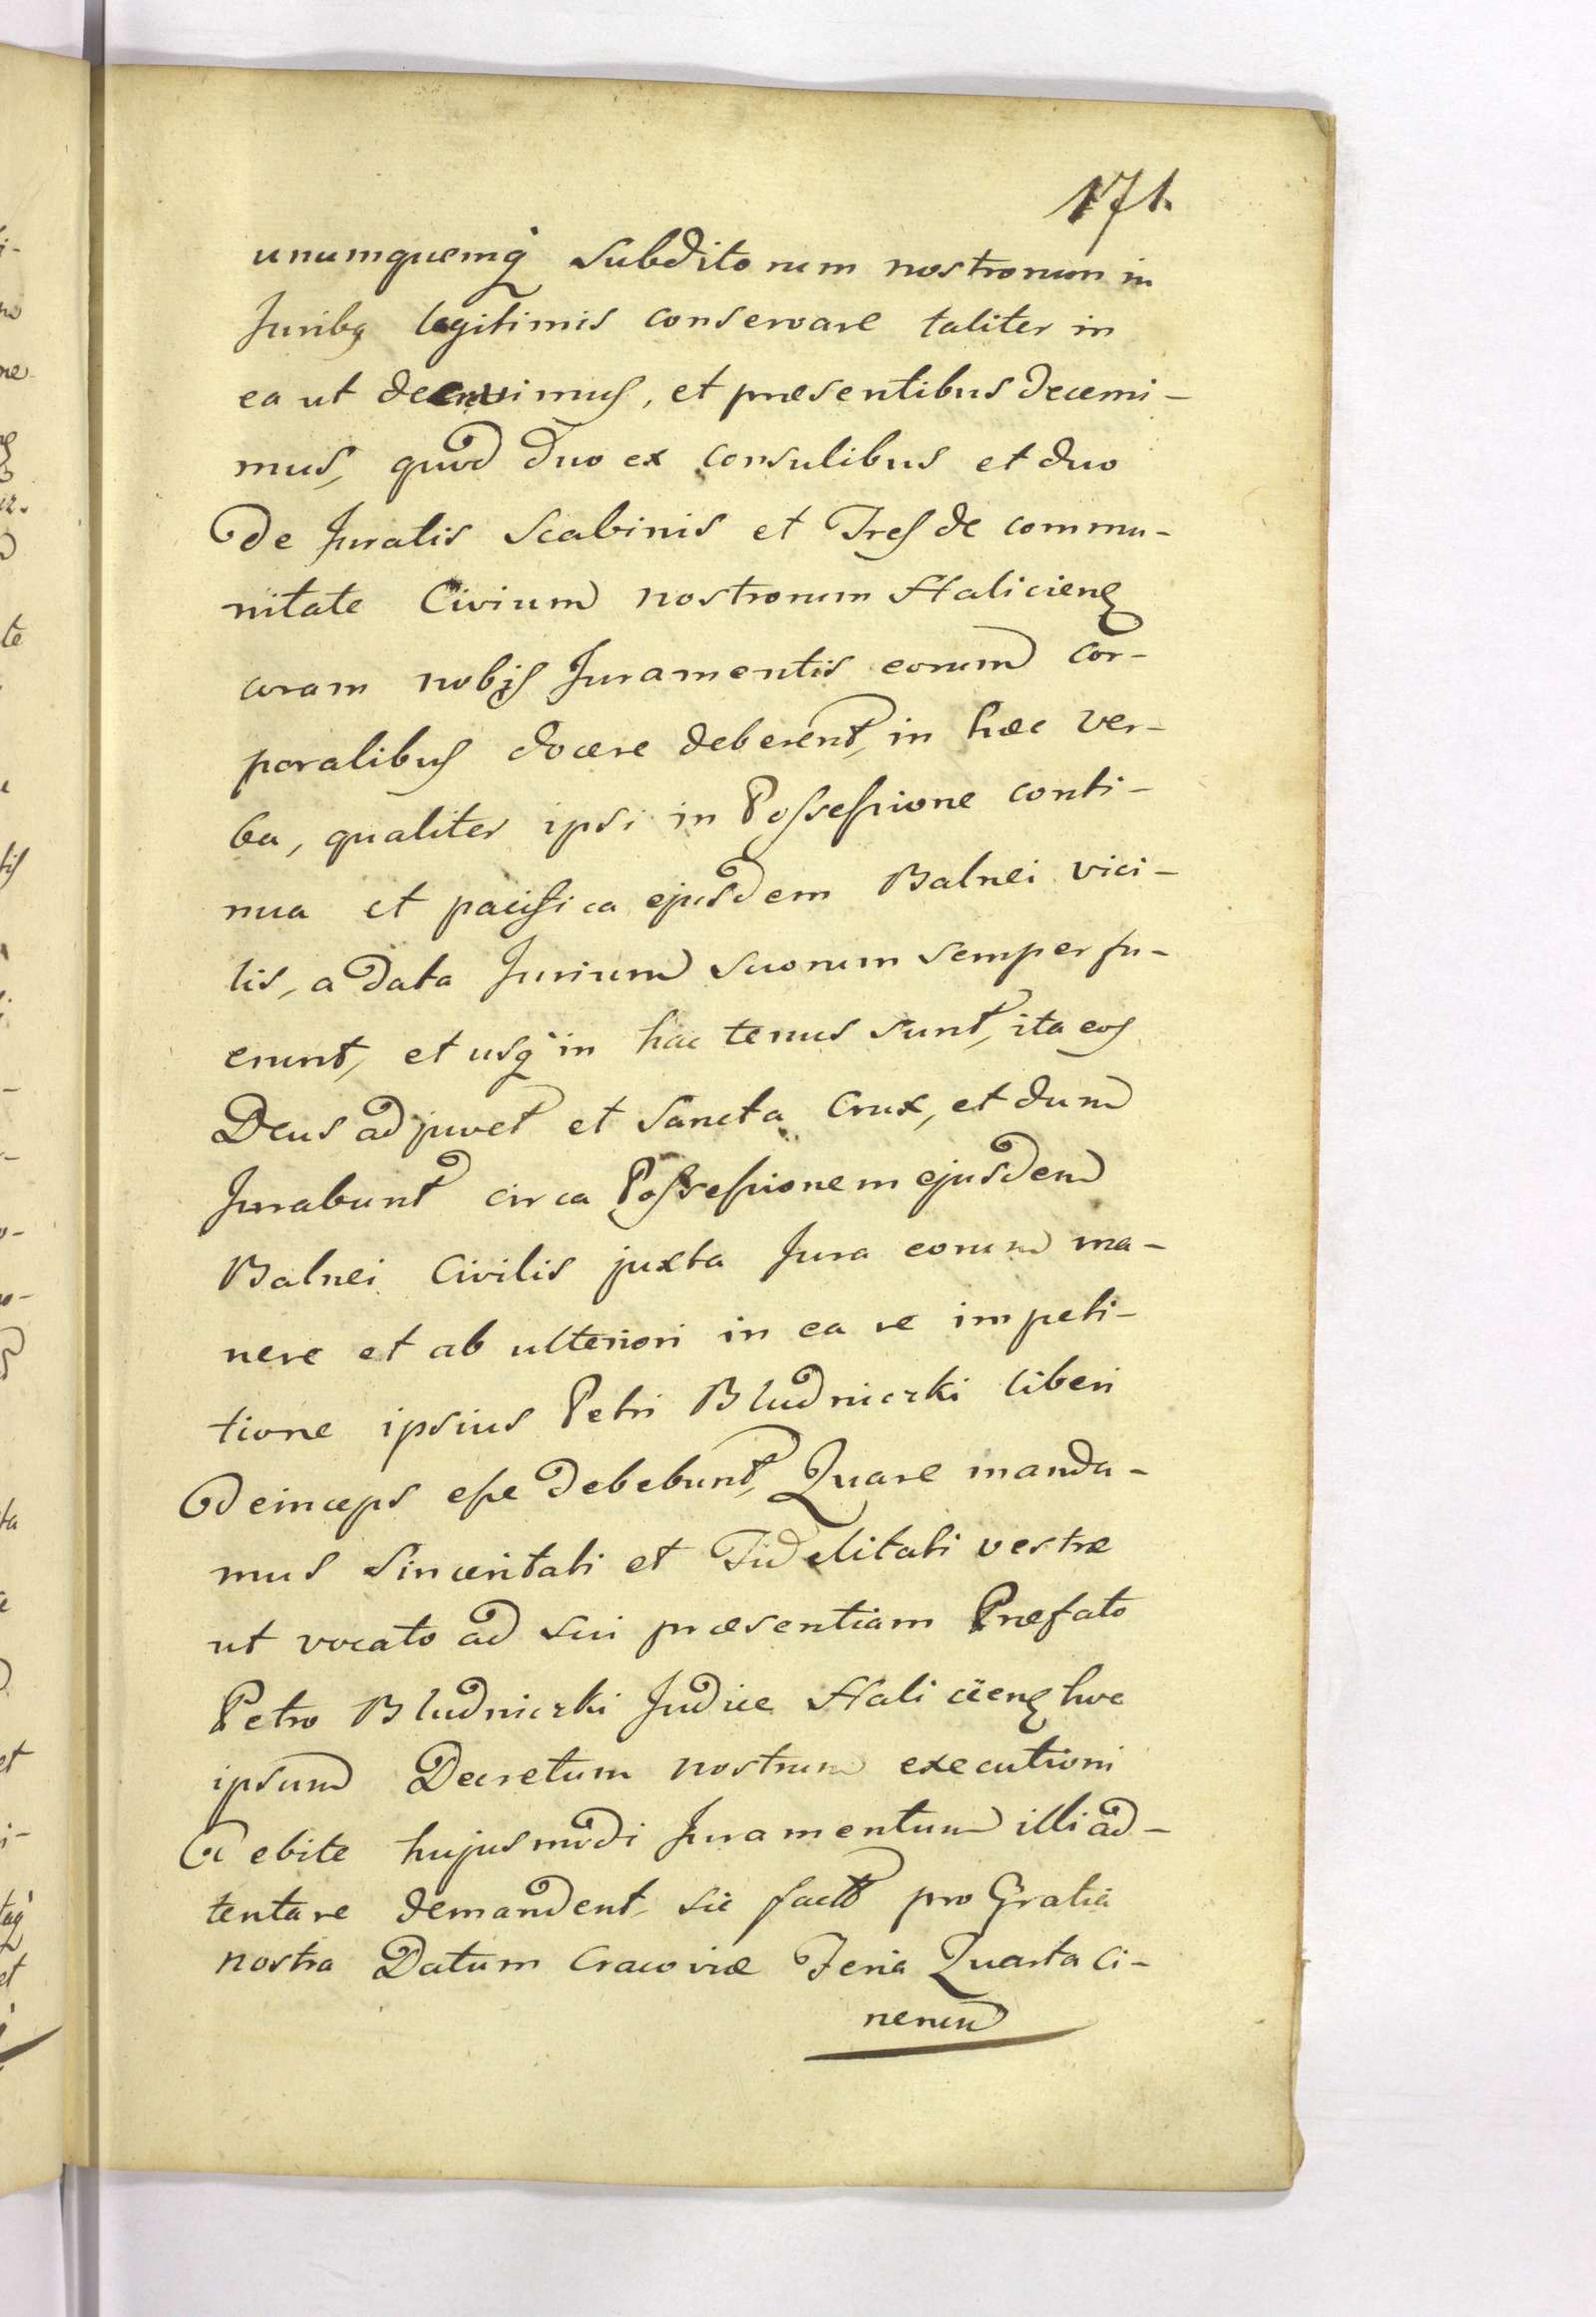 171.
unumquemq́ subditorum nostrorum in
Juribq legitimis conservare taliter in
ea ut decrevimus, et præsentibus decerni-
mus, quod duo ex consulibus et duo
de Juratis Scabinis et Tres de commu-
nitate Civium nostrorum Halicienq
coram nobis Juramentis eorum cor-
poralibus docere deberent, in hæc ver-
ba, qualiter ipsi in Possessione conti-
nua et pacifica ejusdem Balnei vici-
lis, a data Jurium suorum semper fu-
erunt, et usq́ in hac tenus sunt, ita eos
Deus adjuvet et Sancta Crux, et dum
Jurabunt circa Possessionem ejusdem
Balnei Civilis juxta Jura eorum ma-
nere et ab ulteriori in ea re impeti-
tione ipsius Petri Bludniczki liberi
deinceps esse debebunt, Quare manda-
mus Sinceritati et Fidelitati vestræ
ut vocato ad sui præsentiam Præfato
Petro Bludniczki Judice Halicienq hoc
ipsum Decretum nostrum executioni
debite hujusmodi Juramentum illi ad-
tentare demandent, sic facto pro Gratia
nostra Datum Cracoviæ Feria Quarta Ci-
nerum